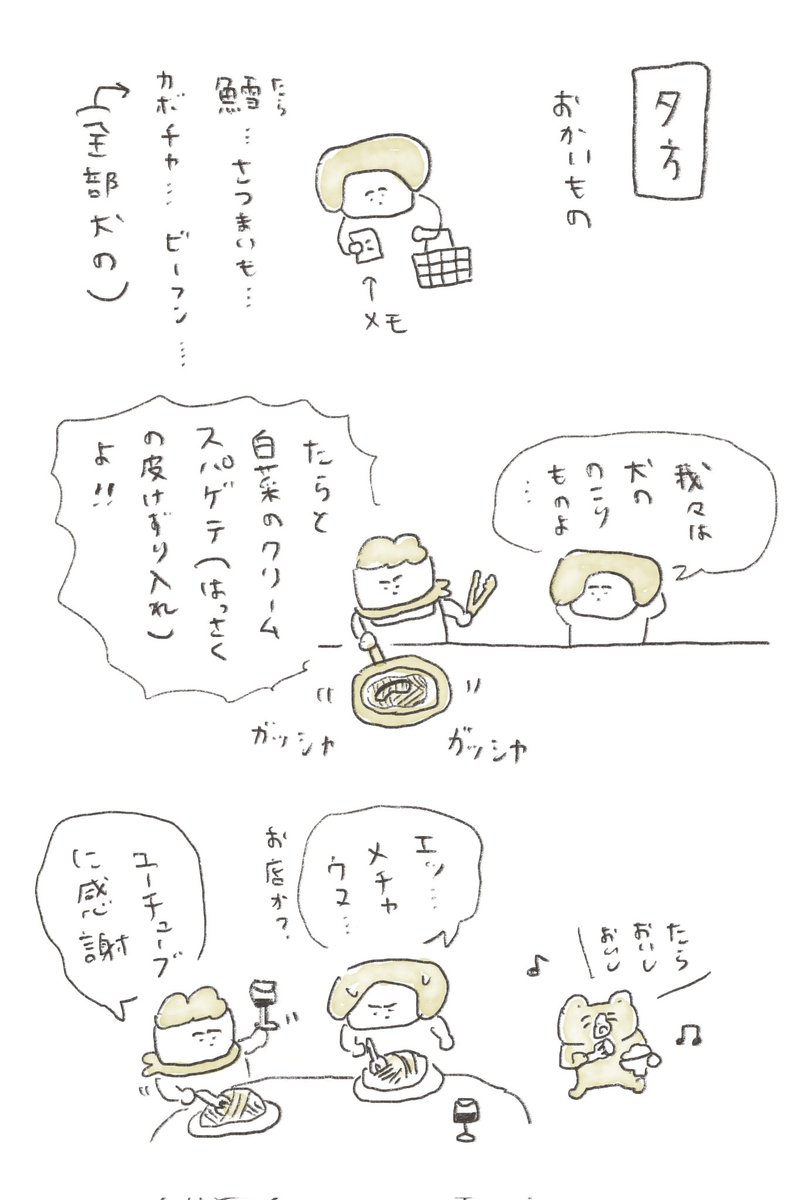 夕方
おかいもの
メモ
たら
鱈…さつまいも…
カボチャ… ビーフン…
(全部犬の)
我々は
犬の
のこり
ものよ
…
たらと
白菜のクリーム
スパゲテ(はっさく
の皮けずり入れ)
よ!!
ガッシャ
ガッシャ
たら
おいし
おいし
エッ…
メチャ
ウマ…
お店か?
ユーチューブ
に感謝